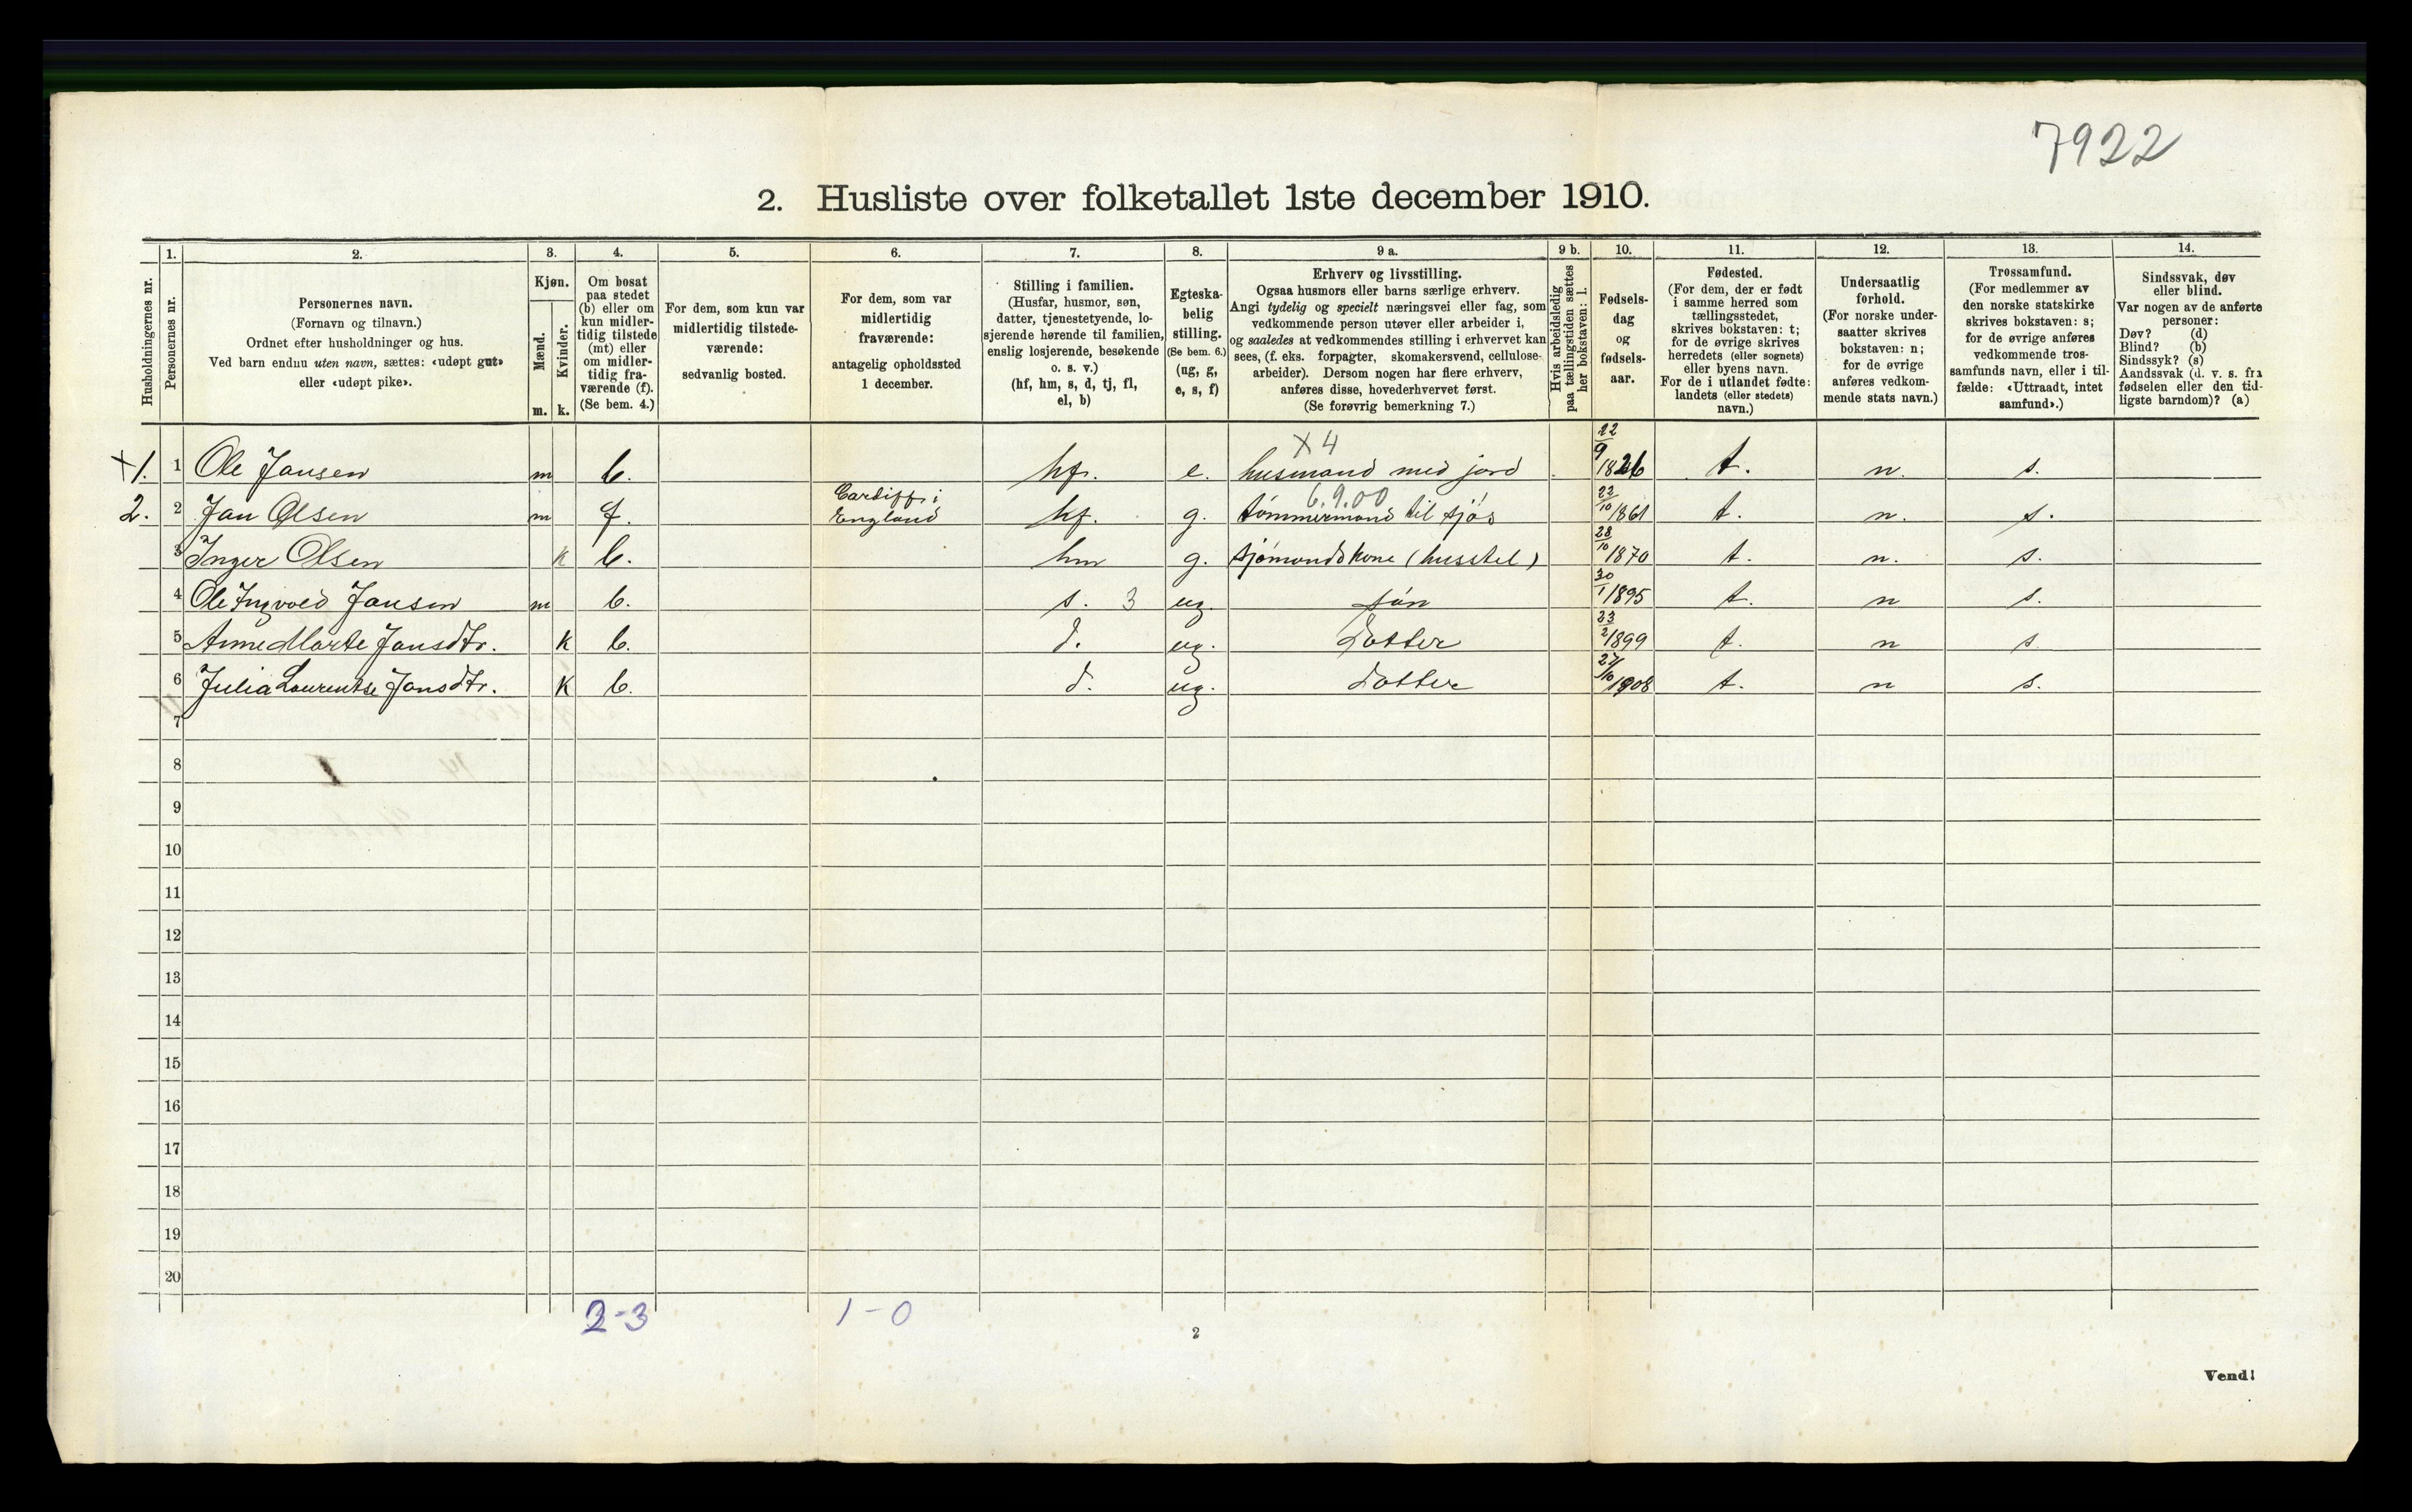 7922
2. Husliste over folketallet 1ste december 1910.
Husholdningernes nr.
1.
Personernes nr.
2.
Personernes navn.
(Fornavn og tilnavn.)
Ordnet efter husholdninger og hus.
Ved barn endnu uten navn, sættes: «udøpt gut»
eller «udøpt pike».
3.
Kjøn.
Mænd.
Kvinder.
m. k.
4.
Om bosat
paa stedet
(b) eller om
kun midler-
tidig tilstede
(mt) eller
om midler-
tidig fra-
værende (f).
(Se bem. 4.)
5.
For dem, som kun var
midlertidig tilstede-
værende:
sedvanlig bosted.
6.
For dem, som var
midlertidig
fraværende:
antagelig opholdssted
1 december.
7.
Stilling i familien.
(Husfar, husmor, søn,
datter, tjenestetyende, lo-
sjerende hørende til familien,
enslig losjerende, besøkende
o. s. v.)
(hf, hm, s, d, tj, fl,
el, b)
8.
Egteska-
belig
stilling.
(Se bem. 6.)
(ug, g,
e, s, f)
9 a.
Erhverv og livsstilling.
Ogsaa husmors eller barns særlige erhverv.
Angi tydelig og specielt næringsvei eller fag, som
vedkommende person utøver eller arbeider i,
og saaledes at vedkommendes stilling i erhvervet kan
sees, (f. eks. forpagter, skomakersvend, cellulose-
arbeider). Dersom nogen har flere erhverv,
anføres disse, hovederhvervet først.
(Se forøvrig bemerkning 7.)
9 b.
Hvis arbeidsledig
paa tællingstiden sættes
her bokstaven: l.
10.
Fødsels-
dag
og
fødsels-
aar.
11.
Fødested.
(For dem, der er født
i samme herred som
tællingsstedet,
skrives bokstaven: t;
for de øvrige skrives
herredets (eller sognets)
eller byens navn.
For de i utlandet fødte:
landets (eller stedets)
navn.)
12.
Undersaatlig
forhold.
(For norske under-
saatter skrives
bokstaven: n;
for de øvrige
anføres vedkom-
mende stats navn.)
13.
Trossamfund.
(For medlemmer av
den norske statskirke
skrives bokstaven: s;
for de øvrige anføres
vedkommende tros-
samfunds navn, eller i til-
fælde: «Uttraadt, intet
samfund».)
14.
Sindssvak, døv
eller blind.
Var nogen av de anførte
personer:
Døv? (d)
Blind? (b)
Sindssyk? (s)
Aandssvak (d. v. s. fra
fødselen eller den tid-
ligste barndom)? (a)
X 4
X1. 1 Ole Jansen m b. hf. e. husmand med jord 22/9 1826 t. n. s.
6.9.00
2. 2 Jan Olsen m f. Cardiff i England hf. g. tømmermand til sjøs 22/10 1861 t. n. s.
3 Inger Olsen k b. hm g. sjømandskone (husstel) 28/10 1870 t. n. s.
4 Ole Ingvald Jansen m b. s. 3 ug. søn 30/1 1895 t. n s.
5 Anne Marte Jansdtr. k b. d. ug. Datter 23/2 1899 t. n s.
6 Julia Laurentse Jansdtr. k b. d. ug. datter 27/10 1908 t. n s.
7
8
9
10
11
12
13
14
15
16
17
18
19
20
2-3 1-0
2
Vend!